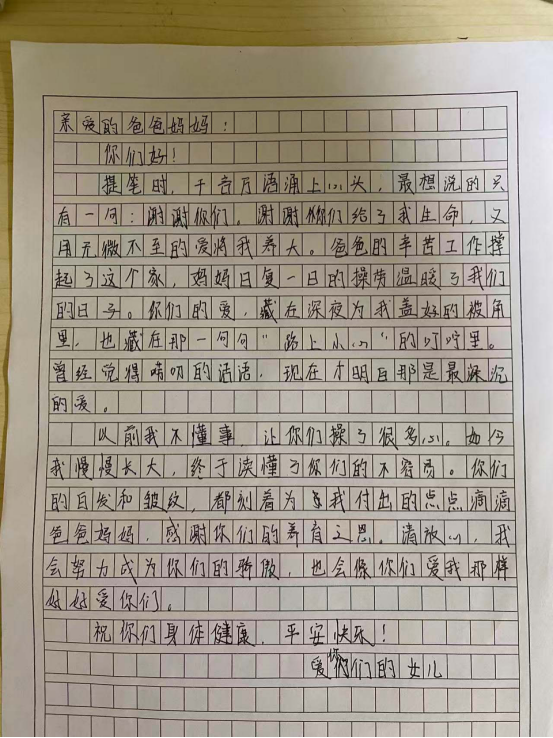 亲爱的爸爸妈妈：
你们好！
提笔时，千言万语涌上心头，最想说的只
有一句：谢谢你们。谢谢你们给了我生命，又
用无微不至的爱将我养大。爸爸的辛苦工作撑
起了这个家，妈妈日复一日的操劳温暖了我们
的日子。你们的爱，藏在深夜为我盖好的被角
里，也藏在那一句句“路上小心”的叮咛里。
曾经觉得唠叨的话语，现在才明白那是最深沉
的爱。
以前我不懂事，让你们操了很多心。如今
我慢慢长大，终于读懂了你们的不容易。你们
的白发和皱纹，都刻着为我付出的点点滴滴
爸爸妈妈，感谢你们的养育之恩。请放心，我
会努力成为你们的骄傲，也会像你们爱我那样
好好爱你们。
祝你们身体健康，平安快乐！
爱你们的女儿